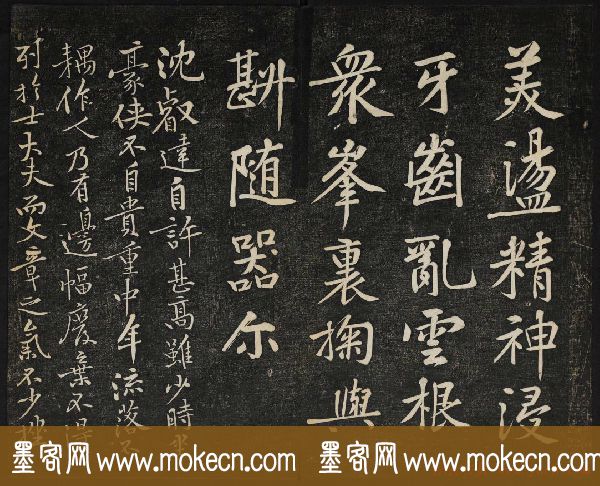 羙盪精神浸
牙齒亂雲根
衆峯裏掬與
斟随器尓
沈叡達自許甚髙雖少時
豪侠不自貴重中年流落
耦作人乃有邊幅廢棄不得
列扵士大夫而文章之氣不少挫
墨客网 www.mokecn.com 墨客网 www.mokecn.com